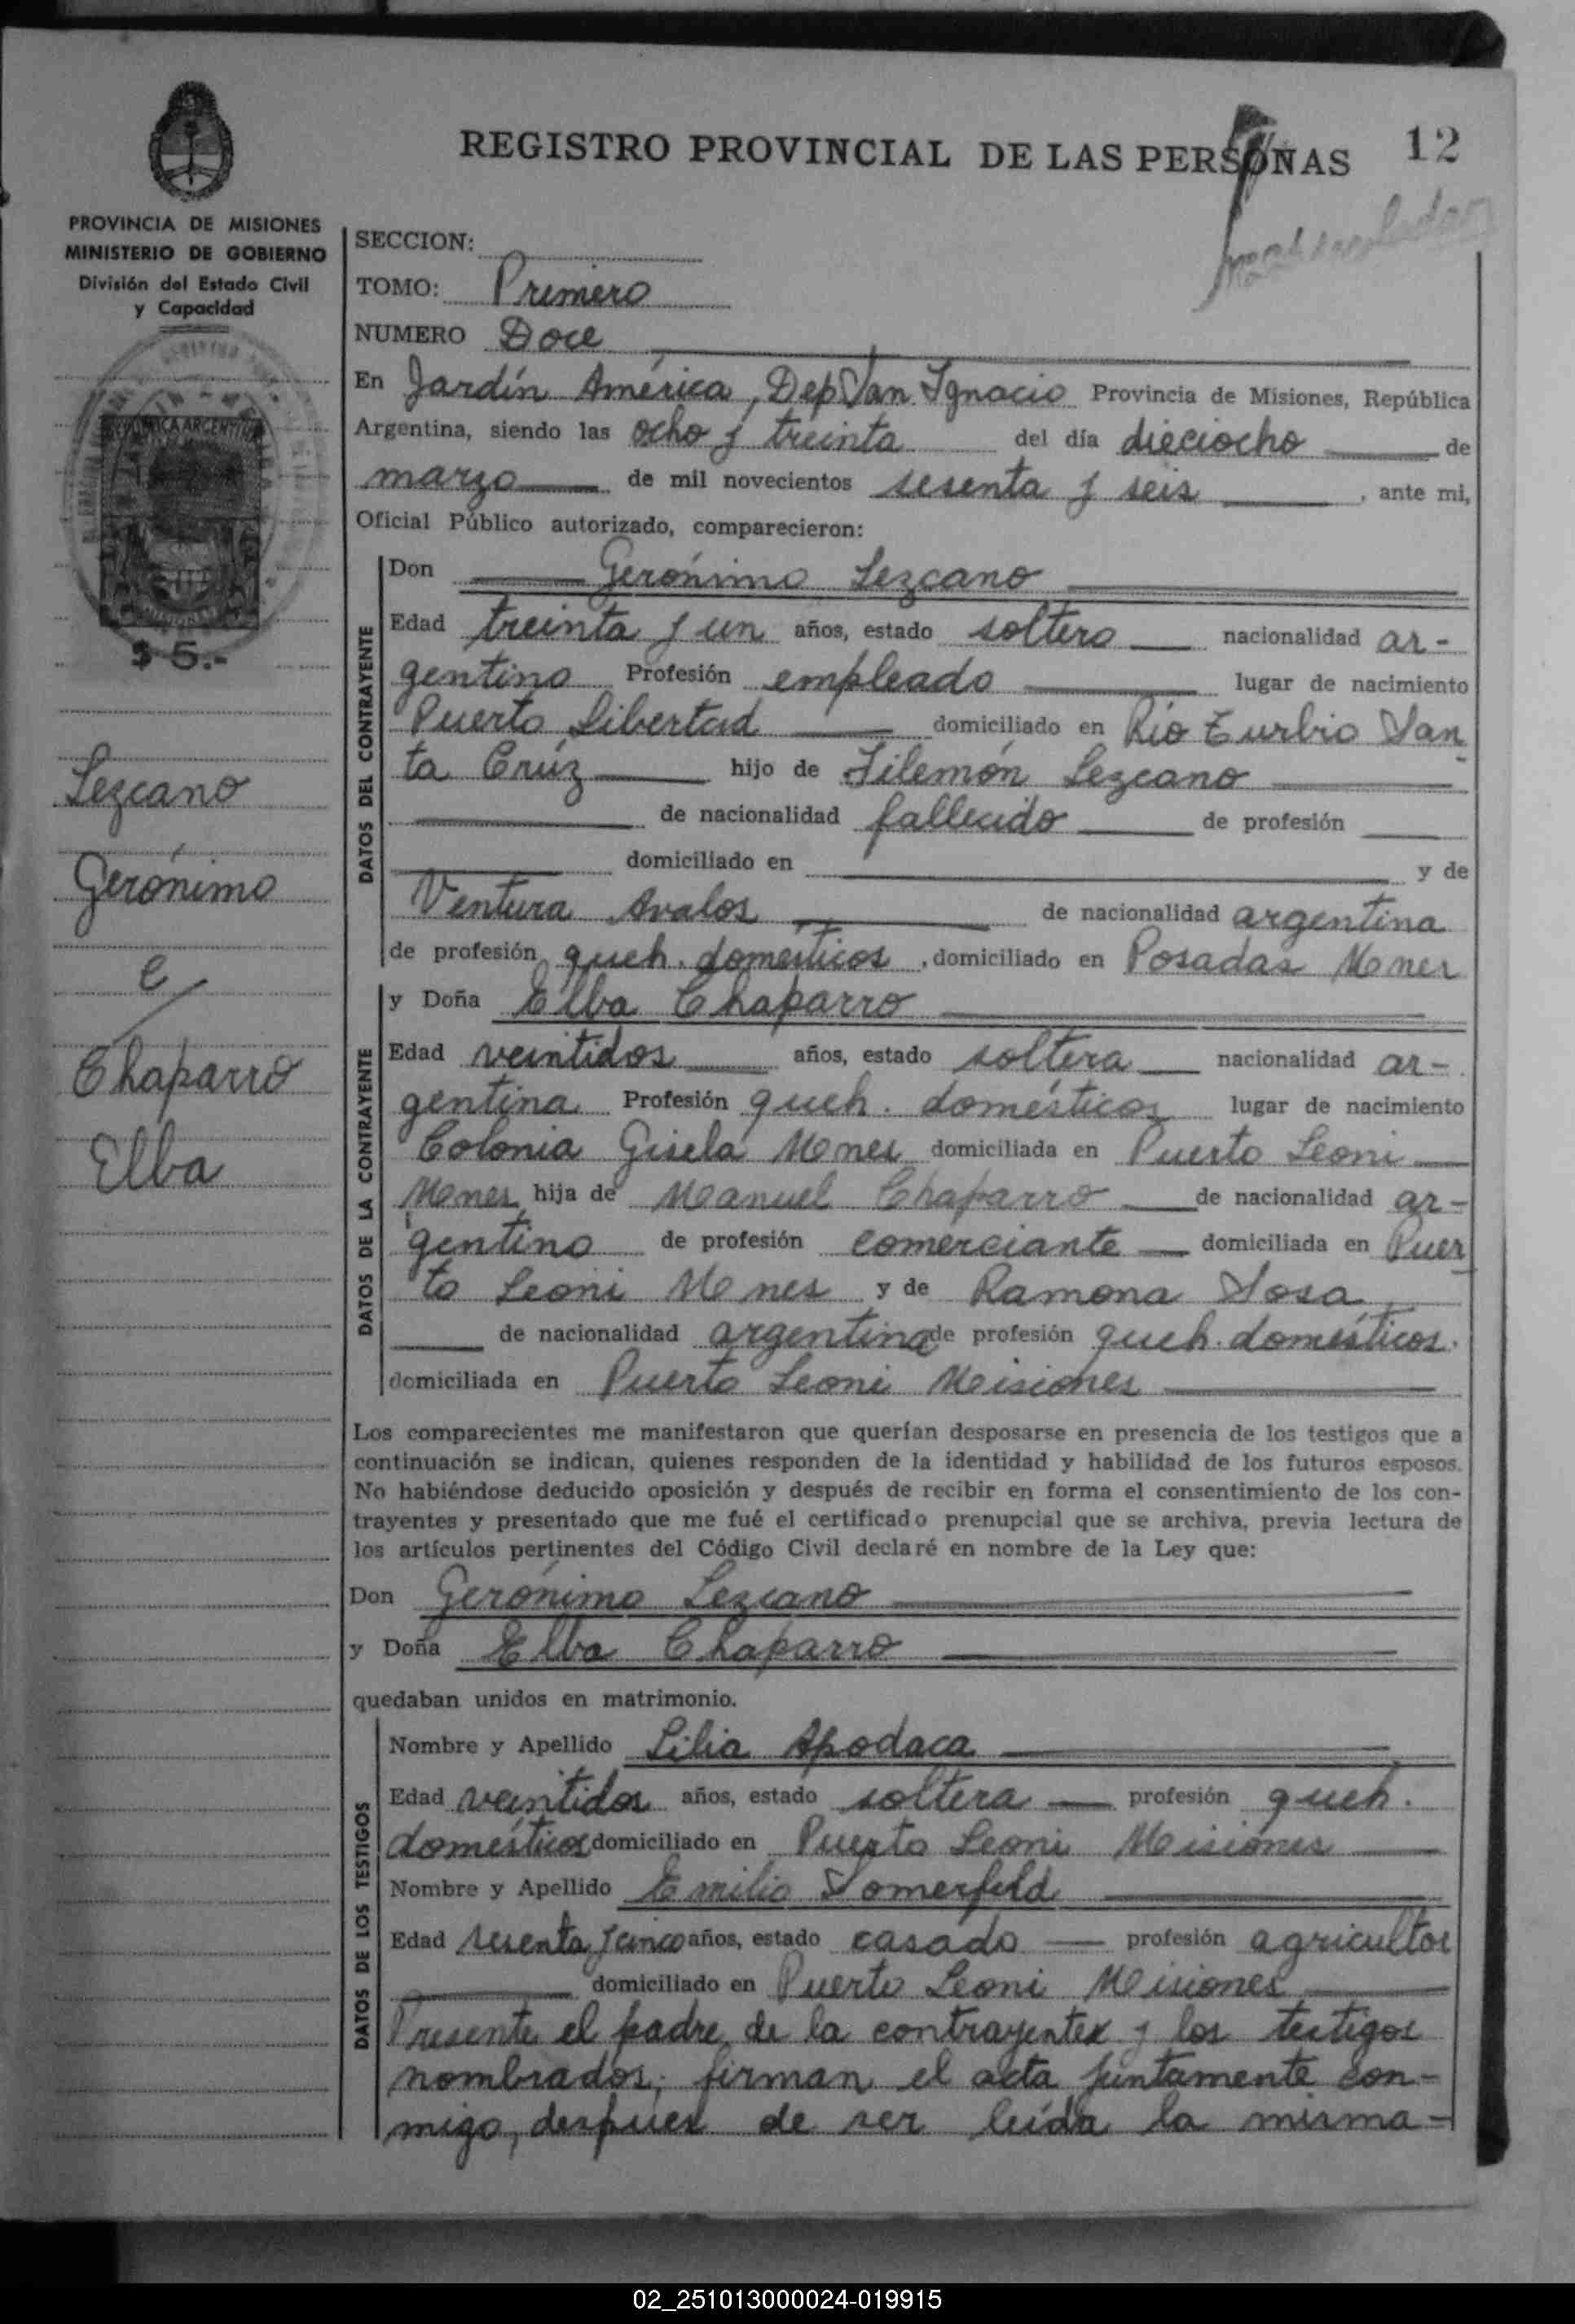 REGISTRO PROVINCIAL DE LAS PERSONAS 12
PROVINCIA DE MISIONES
MINISTERIO DE GOBIERNO
División del Estado Civil
y Capacidad
$ 5.-
Lezcano
Gerónimo
c/
Chaparro
Elba
SECCION:
TOMO: Primero
NUMERO Doce
En Jardín América, Dep San Ignacio Provincia de Misiones, República
Argentina, siendo las ocho y treinta del día dieciocho de
marzo de mil novecientos sesenta y seis, ante mi,
Oficial Público autorizado, comparecieron:
DATOS DEL CONTRAYENTE
Don Gerónimo Lezcano
Edad treinta y un años, estado soltero nacionalidad ar-
gentino Profesión empleado lugar de nacimiento
Puerto Libertad domiciliado en Río Turbio San
ta Cruz hijo de Filemón Lezcano
de nacionalidad fallecido de profesión
domiciliado en y de
Ventura Avalos de nacionalidad argentina
de profesión queh. domésticos, domiciliado en Posadas Mnes
DATOS DE LA CONTRAYENTE
y Doña Elba Chaparro
Edad veintidos años, estado soltera nacionalidad ar-
gentina Profesión queh. domésticos lugar de nacimiento
Colonia Gisela Mnes domiciliada en Puerto Leoni
Mnes hija de Manuel Chaparro de nacionalidad ar-
gentino de profesión comerciante domiciliada en Puer
to Leoni Mnes y de Ramona Sosa
de nacionalidad argentina de profesión queh. domésticos.
domiciliada en Puerto Leoni Misiones
Los comparecientes me manifestaron que querían desposarse en presencia de los testigos que a
continuación se indican, quienes responden de la identidad y habilidad de los futuros esposos.
No habiéndose deducido oposición y después de recibir en forma el consentimiento de los con-
trayentes y presentado que me fué el certificado prenupcial que se archiva, previa lectura de
los artículos pertinentes del Código Civil declaré en nombre de la Ley que:
Don Gerónimo Lezcano
y Doña Elba Chaparro
quedaban unidos en matrimonio.
DATOS DE LOS TESTIGOS
Nombre y Apellido Lilia Apodaca
Edad veintidos años, estado soltera profesión queh.
domésticos domiciliado en Puerto Leoni Misiones
Nombre y Apellido Emilio Somerfeld
Edad sesenta y cinco años, estado casado profesión agricultor
domiciliado en Puerto Leoni Misiones
Presente el padre de la contrayente y los testigos
nombrados; firman el acta juntamente con-
migo, despues de ser leída la misma-
02_251013000024-019915